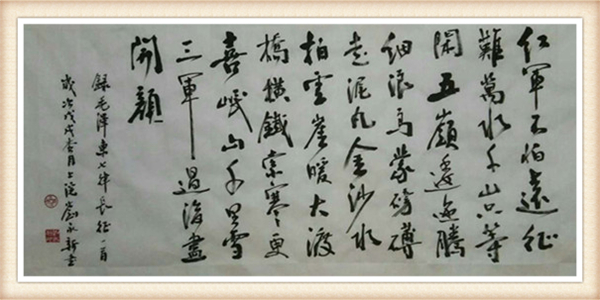 红軍不怕遠征
難萬水千山只等
閑五嶺逶迤騰
细浪烏蒙磅礴
走泥丸金沙水
拍雲崖暖大渡
橋橫鐵索寒更
喜岷山千里雪
三軍過後盡
開顏
録毛澤東七律長征一首
歲次戊戌杏月上浣劉永新書